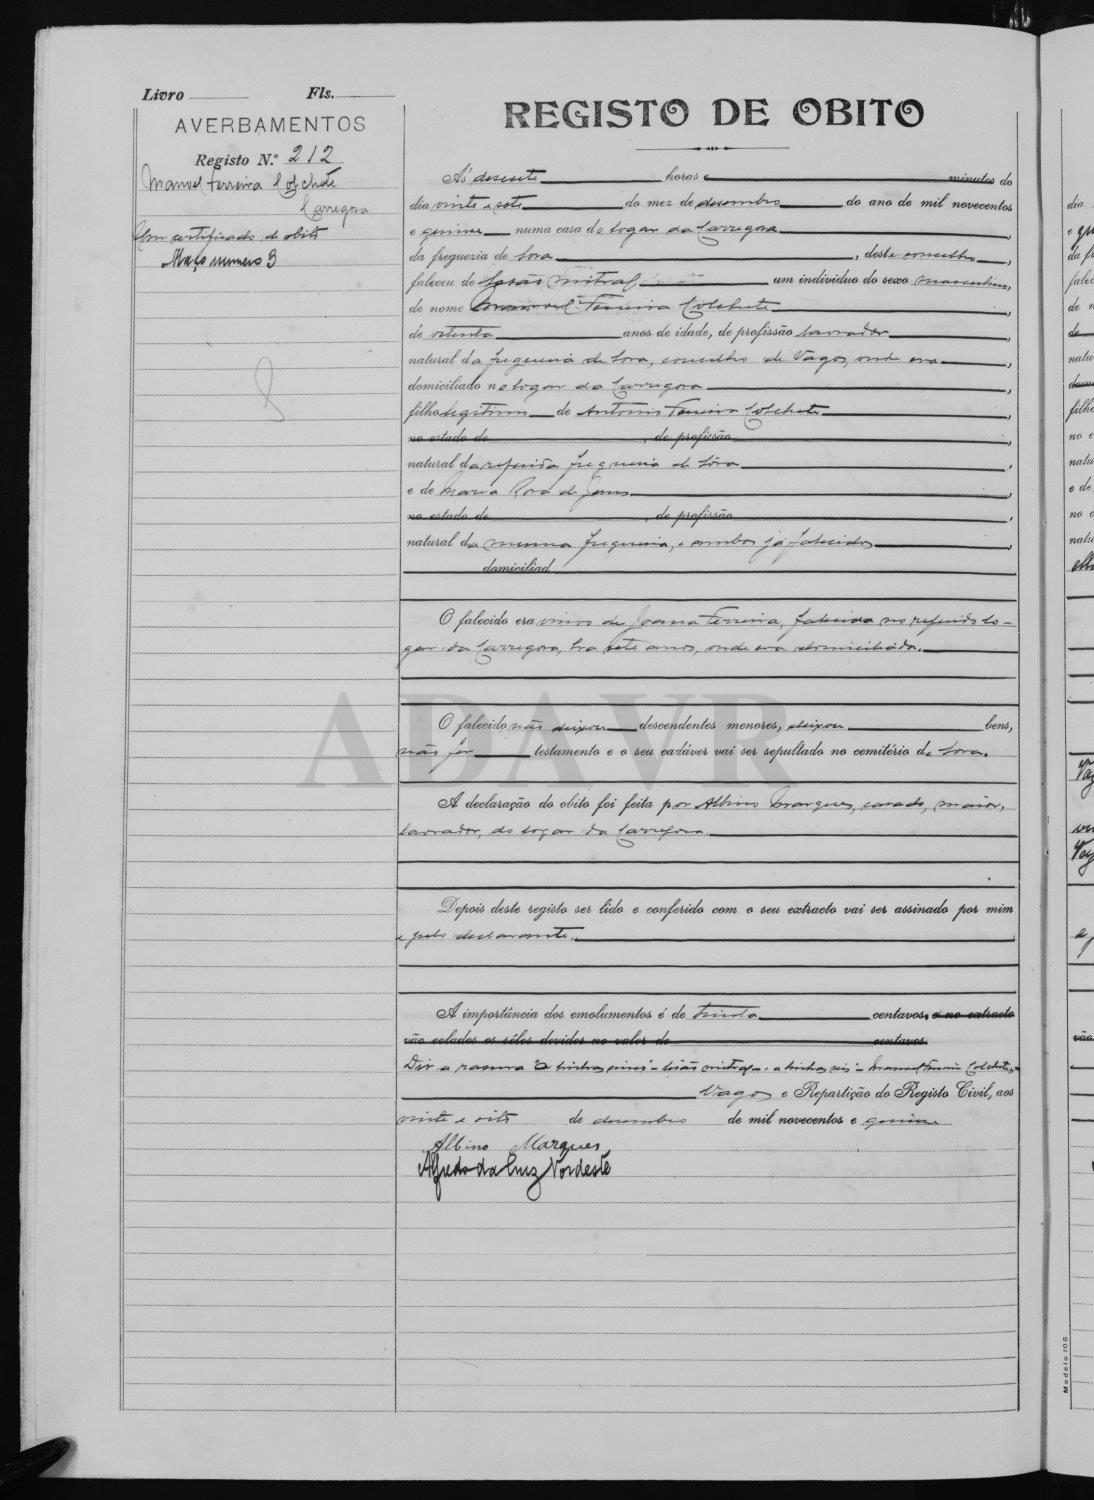 Livro Fls.
AVERBAMENTOS
Registo N.º 212
Manuel Ferreira Colchete
Carregosa
Um certificado de obito
Maço numero 3
REGISTO DE OBITO
Ás desesete horas e minutos do
dia vinte e sete do mez de desembro do ano de mil novecentos
e quinze numa casa do logar da Carregosa
da freguezia de Sosa, deste concelho,
faleceu de lesão mitral um individuo do sexo masculino,
de nome Manuel Ferreira Colchete,
de oitenta anos de idade, de profissão lavrador,
natural da freguesia de Sosa, concelho de Vagos, onde era
domiciliado no logar da Carregosa,
filho legitimo de Antonio Ferreira Colchete
no estado de, de profissão,
natural da referida freguesia de Sosa,
e de Maria Rosa de Jesus,
no estado de, de profissão,
natural da mesma freguesia, e ambos já falecidos,
domiciliad
O falecido era viuvo de Joana Ferreira, falecida no referido lo-
gar da Carregosa, ha sete anos, onde era domiciliada.
ADAVR
O falecido não deixou descendentes menores, deixou bens,
não fez testamento e o seu cadáver vai ser sepultado no cemitério de Sosa.
A declaração do obito foi feita por Albino Marques, casado, maior,
lavrador, do logar da Carregosa.
Depois deste registo ser lido e conferido com o seu extracto vai ser assinado por mim
e pelo declarante.
A importância dos emolumentos é de trinta centavos, e no extracto
vão colados os sêlos devidos no valor de centavos.
a rasura linhas cinco - lesão mitral - e a linhas seis - Manuel Ferreira Colchete.
Vagos e Repartição do Registo Civil, aos
vinte e oito de desembro de mil novecentos e quinze.
Albino Marques
Alfredo da Cruz Nordeste
Modelo 105